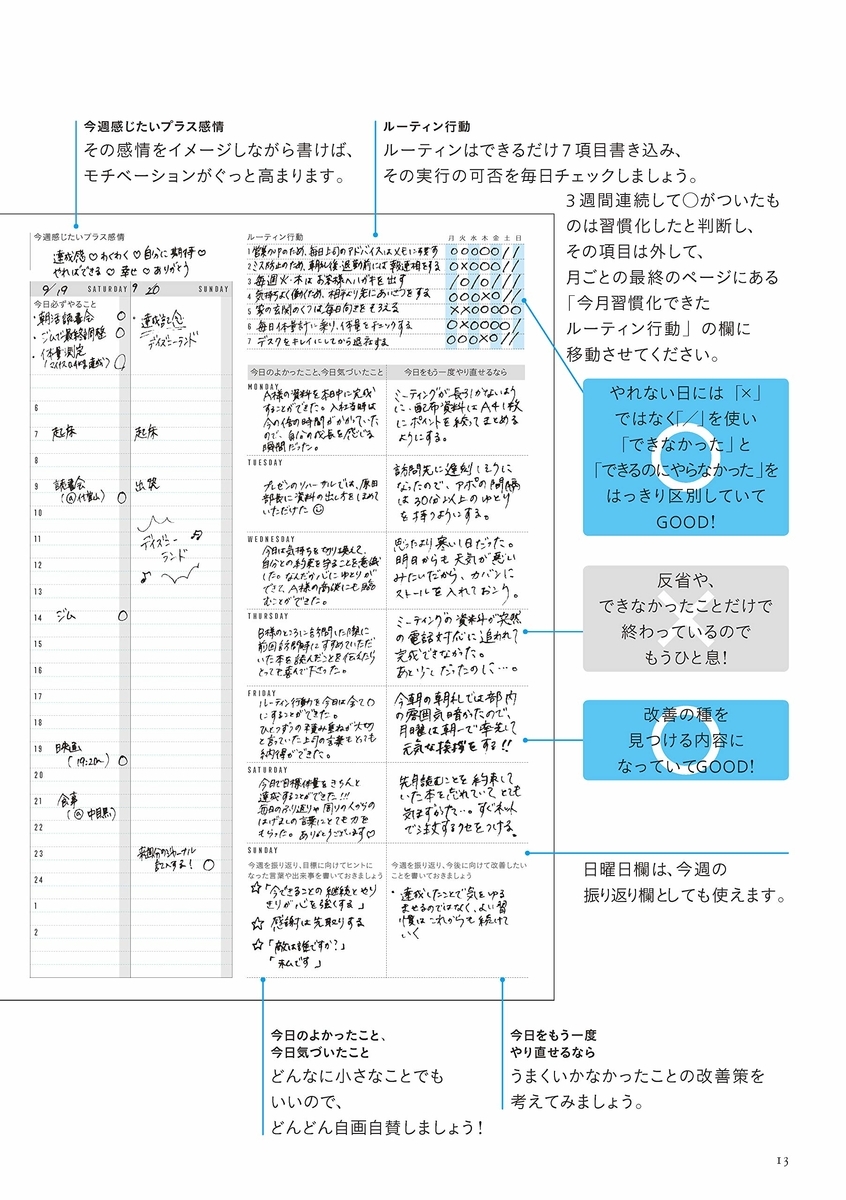 今週感じたいプラス感情
その感情をイメージしながら書けば、
モチベーションがぐっと高まります。
ルーティン行動
ルーティンはできるだけ7項目書き込み、
その実行の可否を毎日チェックしましょう。
3週間連続して○がついたも
のは習慣化したと判断し、
その項目は外して、
月ごとの最終のページにある
「今月習慣化できた
ルーティン行動」の欄に
移動させてください。
今週感じたいプラス感情
達成感♡わくわく♡自分に期待♡
やればできる♡幸せ♡ありがとう
9/19 SATURDAY
9 20 SUNDAY
今日必ずやること
・朝活読書会 ○
・ジムで最終調整 ○
・体重測定 ○
・達成記念
ディズニーランド
6
7 起床 起床
8
9 読書会 ○ 出発
(@代官山)
10
11 ディズニー
ランド
12
13
14 ジム ○
15
16
17
18
19 映画 ○
(19:20〜)
20
21 食事
(@中目黒)
22
23
24
1
2
ルーティン行動
月火水木金土日
1 営業力UPのため、毎日上司のアドバイスはメモに残す ○○○○○//
2 ミス防止のため、朝礼後・退勤前には報連相をする ○×○○○//
3 毎週火・木はお客様へハガキを出す /○/○///
4 気持ちよく働くため、相手より先にあいさつをする ○○○×○//
5 家の玄関のくつは毎日向きをそろえる ××○○○○○
6 毎日体重計に乗り、体重をチェックする ○×○○○○/
7 デスクをキレイにしてから退社する ○○○×○//
今日のよかったこと、今日気づいたこと
今日をもう一度やり直せるなら
MONDAY
A様の資料を本日中に完成
することができた。入社当時は
今の倍の時間がかかっていた
ので、自分の成長を感じる
瞬間だった。
ミーティングが長引かないよう
に、配布資料はA4 1枚
にポイントを絞ってまとめる
ようにする。
TUESDAY
プレゼンのリハーサルでは、原田
部長に資料の出し方をほめて
いただけた☺
訪問先に遅刻しそうに
なったので、アポの間隔
は30分以上のゆとり
を持つようにする。
WEDNESDAY
今日は気持ちを切り換えて、
自分との約束を守ることを意識
した。なんだか心にゆとりが
できて、A様の商談にも臨
むことができた。
思ったより寒い1日だった。
明日からも天気が悪い
みたいだから、カバンに
ストールを入れておこう。
THURSDAY
B様のところに訪問した際に
前回訪問時にすすめていただ
いた本を読んだことを伝えたら
とっても喜んで下さった。
ミーティングの資料が突然
の電話対応に追われて
完成できなかった。
あと少しだったのに…。
FRIDAY
ルーティン行動を今日は全て○
にすることができた。
ひとつずつの積み重ねが大切
と言っていた上司の言葉もとても
納得ができた。
今朝の朝礼では部内
の雰囲気暗かったので、
月曜は朝一で率先して
元気な挨拶をする!!
SATURDAY
今日で目標体重をきちんと
達成することができた!!!
毎日のふり返りや周りの人からの
はげましの言葉にとても力を
もらった。ありがとうございます♡
先月読むことを約束して
いた本を忘れていて、とても
気まずかった…。すぐネット
で注文するクセをつける。
SUNDAY
今週を振り返り、目標に向けてヒントに
なった言葉や出来事を書いておきましょう
今週を振り返り、今後に向けて改善したい
ことを書いておきましょう
☆「今できることの継続とやり
きりが心を強くする」
☆ 感謝は先取りする
☆「敵は誰ですか?」
「私です」
・達成したことで気をゆる
ませるのではなく、よい習
慣はこれからも続けて
いく
やれない日には「×」
ではなく「／」を使い
「できなかった」と
「できるのにやらなかった」を
はっきり区別していて
GOOD!
反省や、
できなかったことだけで
終わっているので
もうひと息!
改善の種を
見つける内容に
なっていてGOOD!
日曜日欄は、今週の
振り返り欄としても使えます。
今日のよかったこと、
今日気づいたこと
どんなに小さなことでも
いいので、
どんどん自画自賛しましょう!
今日をもう一度
やり直せるなら
うまくいかなかったことの改善策を
考えてみましょう。
13